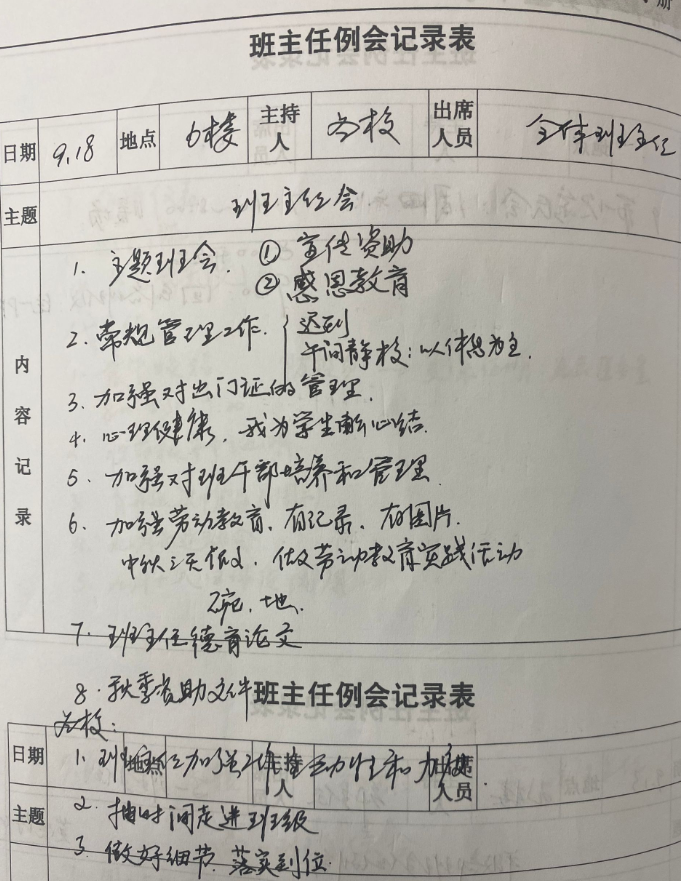 班主任例会记录表
日期 9.18 地点 6楼 主持人 校 出席人员 全体班主任
主题 班主任会
内容记录
1. 主题班会. ① 宣传资助
② 感恩教育
2. 常规管理工作. 迟到
午间静校：以休息为主.
3. 加强对出门证的管理.
4. 心理健康，我为学生解心结.
5. 加强对班干部培养和管理
6. 加强劳动教育，有记录、有图片.
中秋三天，做劳动教育实践活动
碗、地.
7. 班主任德育论文
8. 秋季资助文件
班主任例会记录表
校：
日期 地点 主持人 出席人员
1. 班主任加强工作主动性和
主题
2. 抽时间走进班级
3. 做好细节，落实到位.